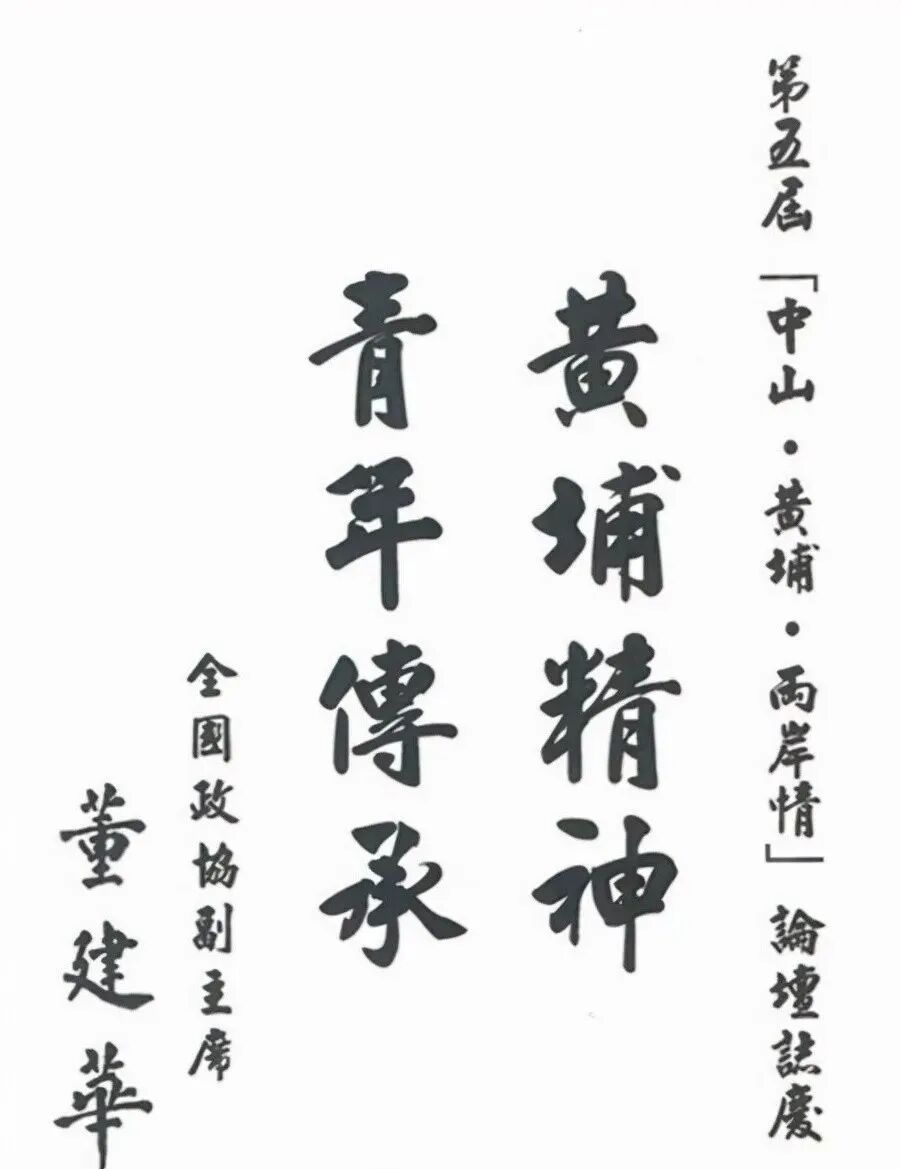 第五屆「中山·黃埔·兩岸情」論壇誌慶
黃埔精神
青年傳承
全國政協副主席
董建華